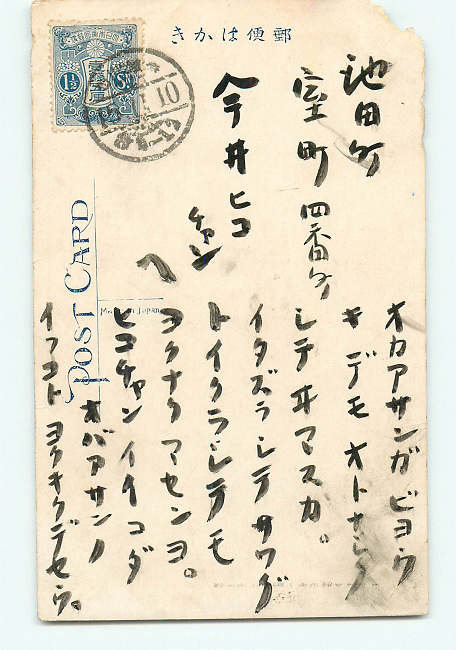 郵便はかき
1½ Sn
10
池田町
室町四番町
今井ヒコチャン
ヘ
オカアサンガビヨウ
キデモオトナシク
シテヰマスカ。
イタズラシテサワグ
トイクラシテモ
ヨクナリマセンヨ。
ヒコチャンイイコダ
オバアサンノ
イフコトヨクキクデセウ。
POST CARD
Made in Japan